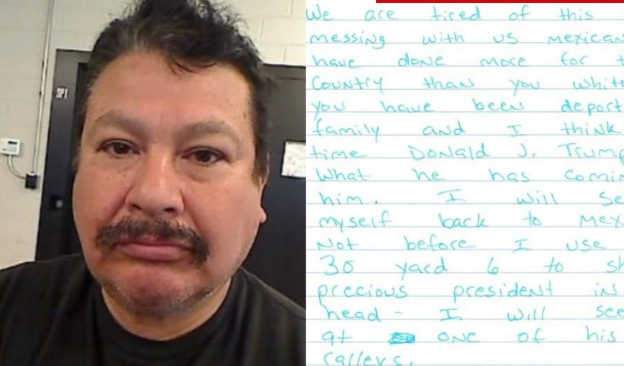 We are tired of this
messing with us mexican
have done more for t
Country than you white
you have been deport
family and I think
time Donald J. Trump
What he has comin
him. I will se
myself back to Mex
Not before I use
30 yard 6 to sh
precious president in
head - I will see
at one of his